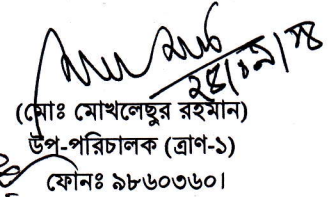 ২৪/০৯/১৪
(মোঃ মোখলেছুর রহমান)
উপ-পরিচালক (ত্রাণ-১)
ফোনঃ ৯৮৬০৩৬০।